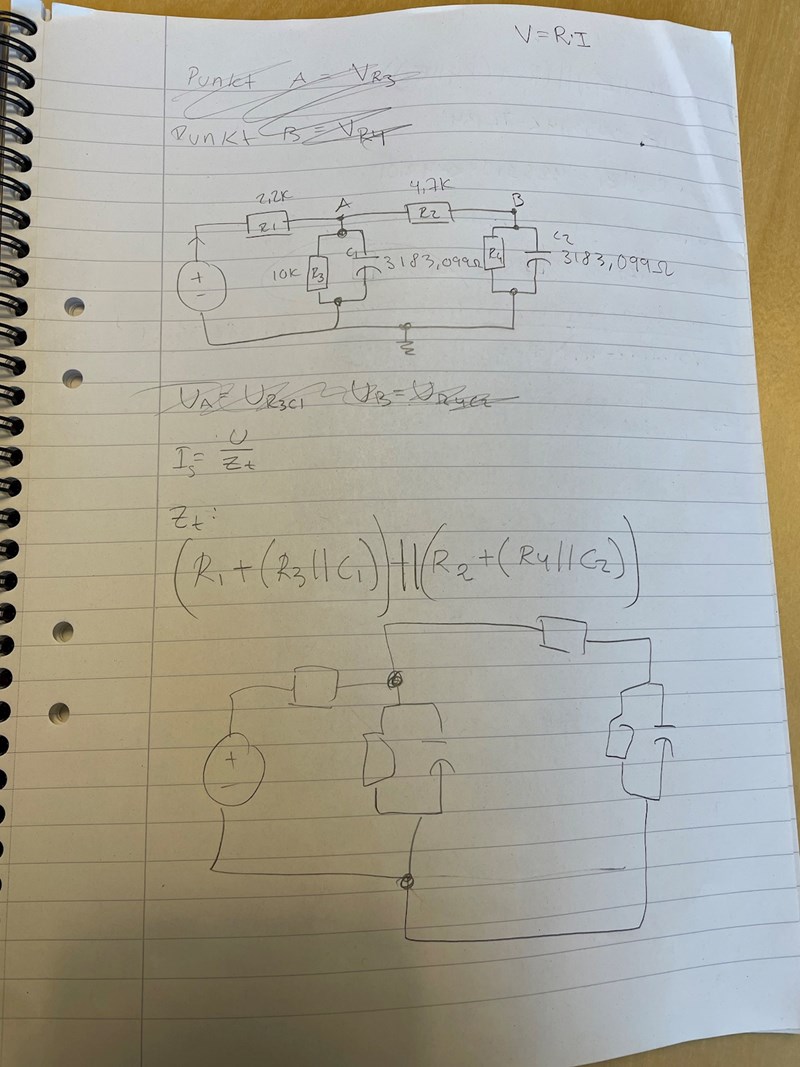 V=R·I
Punkt A = VR3
Punkt B = VR4
2,2K 4,7K
R1 A R2 B
10K R3 C1 3183,099Ω R4 C2 3183,099Ω
+
-
UA = UR3C1 UB = UR4C2
Is = U/Zt
Zt:
(R1+(R3||C1))||(R2+(R4||C2))
+
-